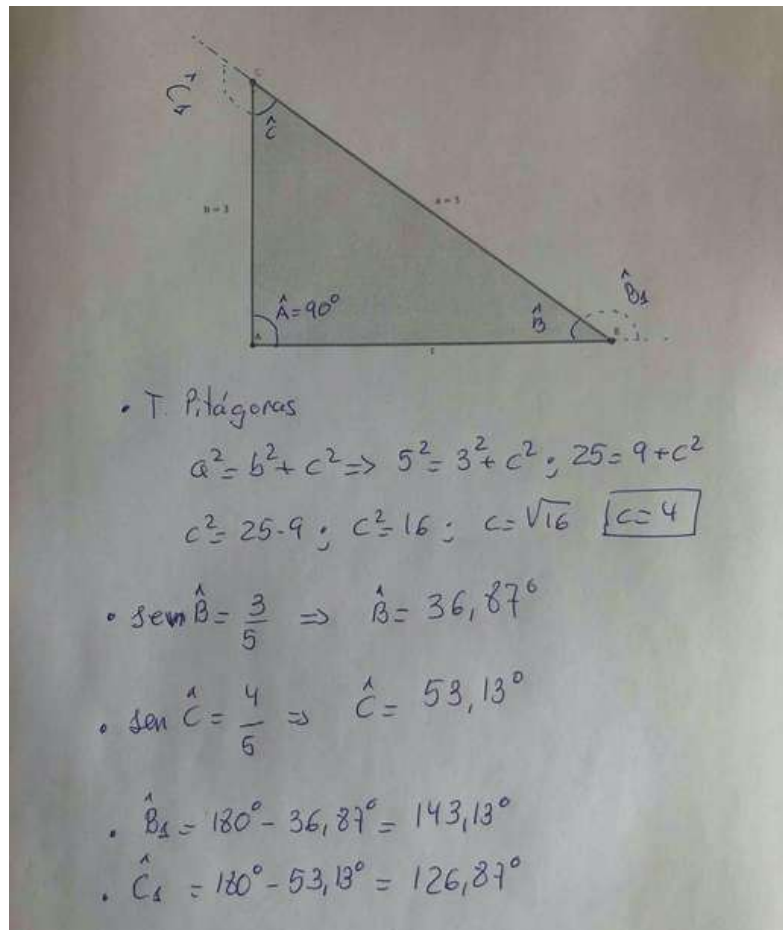 C
Ĉ₁
Ĉ
b = 3
a = 5
B̂₁
Â=90°
B̂
A
B
c
• T. Pitágoras
a²=b²+c² => 5²=3²+c² ; 25=9+c²
c²=25-9 ; c²=16 ; c=√16 c=4
• sen B̂ = 3/5 => B̂= 36,87°
• sen Ĉ = 4/5 => Ĉ= 53,13°
• B̂₁ = 180°- 36,87°= 143,13°
• Ĉ₁ = 180°- 53,13° = 126,87°